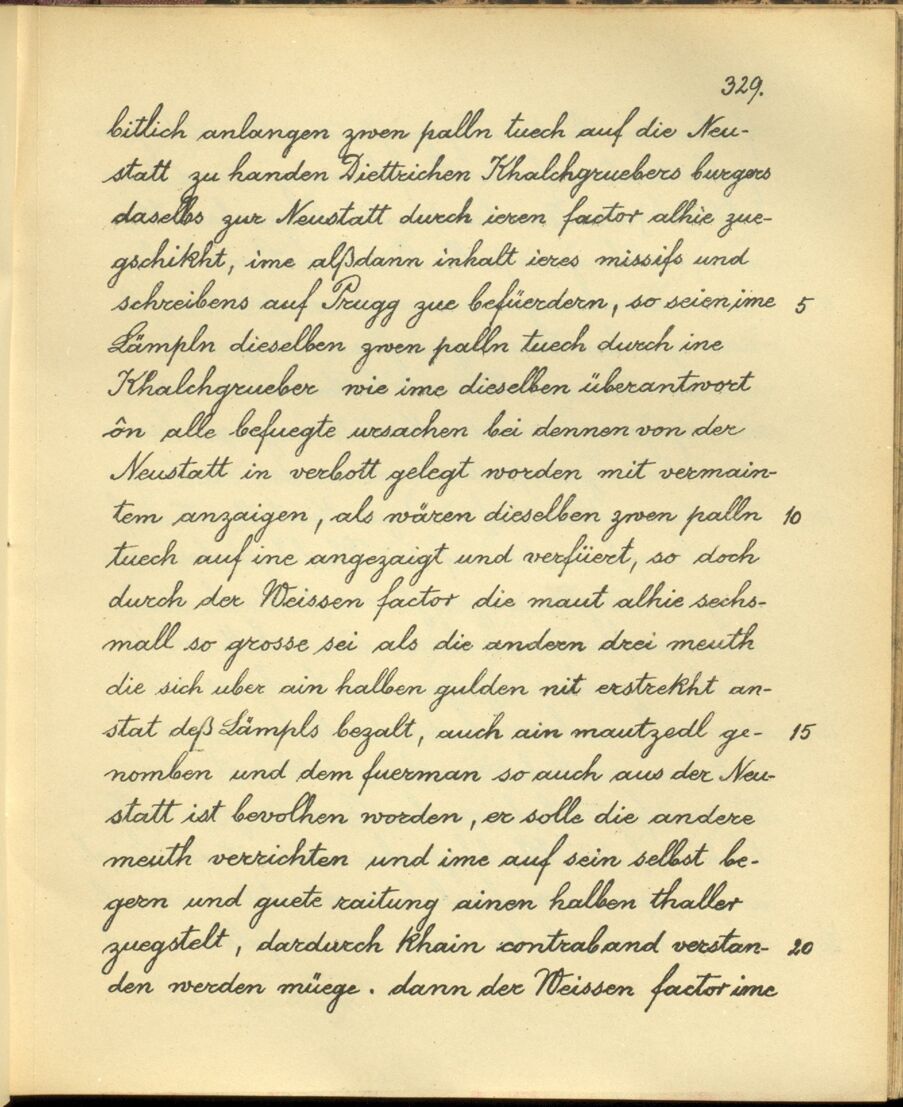 329.
bitlich anlangen zwen palln tuech auf die Neu-
statt zu handen Diettrichen Khalchgruebers burgers
daselbs zur Neustatt durch ieren factor alhie zue-
gschikht, ime alßdann inhalt ieres missifs und
schreibens auf Prugg zue befüerdern, so seien ime 5
Lämpln dieselben zwen palln tuech durch ine
Khalchgrueber wie ime dieselben überantwort
ôn alle befuegte ursachen bei dennen von der
Neustatt in verbott gelegt worden mit vermain-
tem anzaigen, als wären dieselben zwen palln 10
tuech auf ine angezaigt und verfüert, so doch
durch der Weissen factor die maut alhie sechs-
mall so grosse sei als die andern drei meuth
die sich uber ain halben gulden nit erstrekht an-
stat deß Lämpls bezalt, auch ain mautzedl ge- 15
nomben und dem fuerman so auch aus der Neu-
statt ist bevolhen worden, er solle die andere
meuth verrichten und ime auf sein selbst be-
gern und guete raitung ainen halben thaller
zuegstelt, dardurch khain contraband verstan- 20
den werden müege. dann der Weissen factor ime